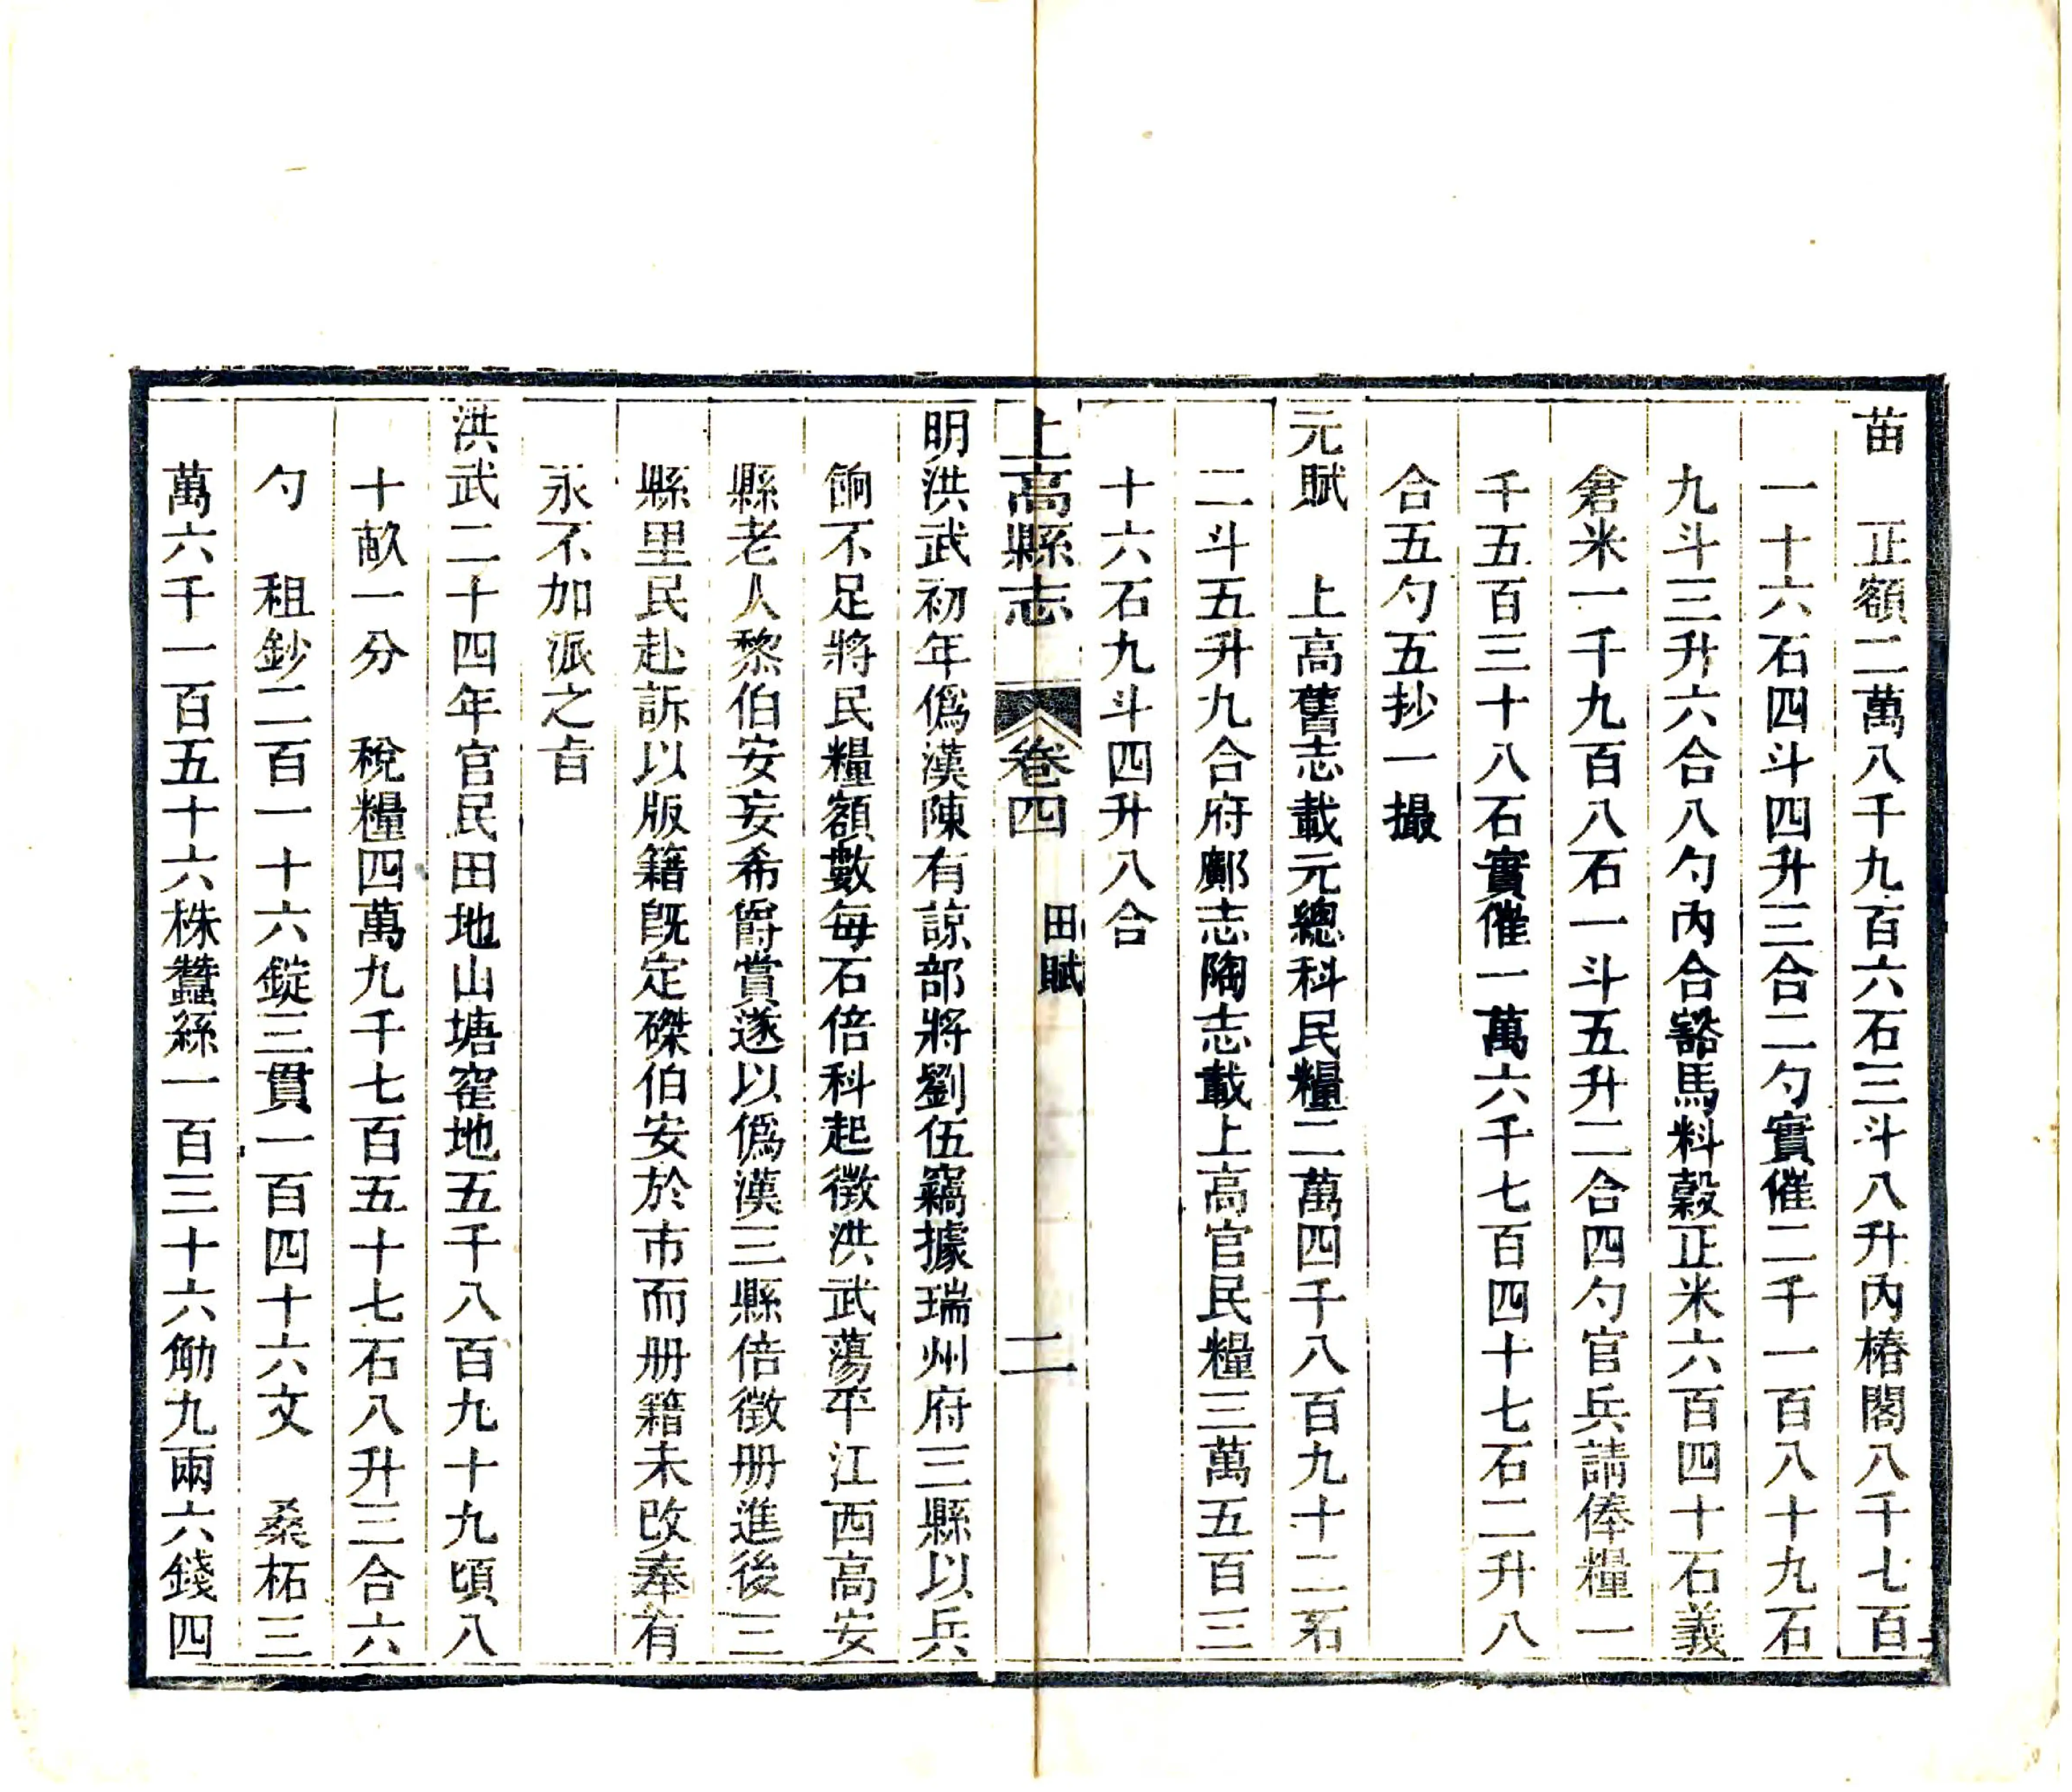 苗　正額二萬八千九百六石三斗八升內樁閣八千七百
一十六石四斗四升三合二勺實催二千一百八十九石
九斗三升六合八勺內合豁馬料穀正米六百四十石義
倉米一千九百八石一斗五升二合四勺官兵請俸糧一
千五百三十八石實催一萬六千七百四十七石二升八
合五勺五抄一撮
元賦　上高舊志載元總科民糧二萬四千八百九十二石
二斗五升九合府鄺志陶志載上高官民糧三萬五百三
十六石九斗四升八合
上高縣志　卷四　田賦　二
明洪武初年僞漢陳有諒部將劉伍竊據瑞州府三縣以兵
餉不足將民糧額數每石倍科起徵洪武蕩平江西高安
縣老人黎伯安妄希爵賞遂以僞漢三縣倍徵册進後三
縣里民赴訴以版籍旣定磔伯安於市而册籍未改奉有
永不加派之㫖
洪武二十四年官民田地山塘窰地五千八百九十九頃八
十畝一分　稅糧四萬九千七百五十七石八升三合六
勺　租鈔二百一十六錠三貫一百四十六文　桑柘三
萬六千一百五十六株蠶絲一百三十六觔九兩六錢四